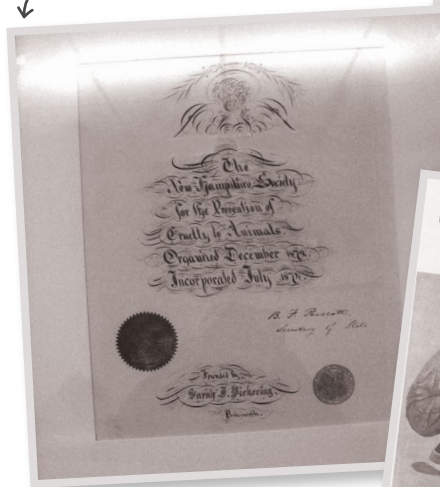 The
New Hampshire Society
for the Prevention of
Cruelty to Animals
Organized December 1872.
Incorporated July
B. F. Prescott,
Secretary of State
by
Sarah J. Pickering.
Portsmouth.